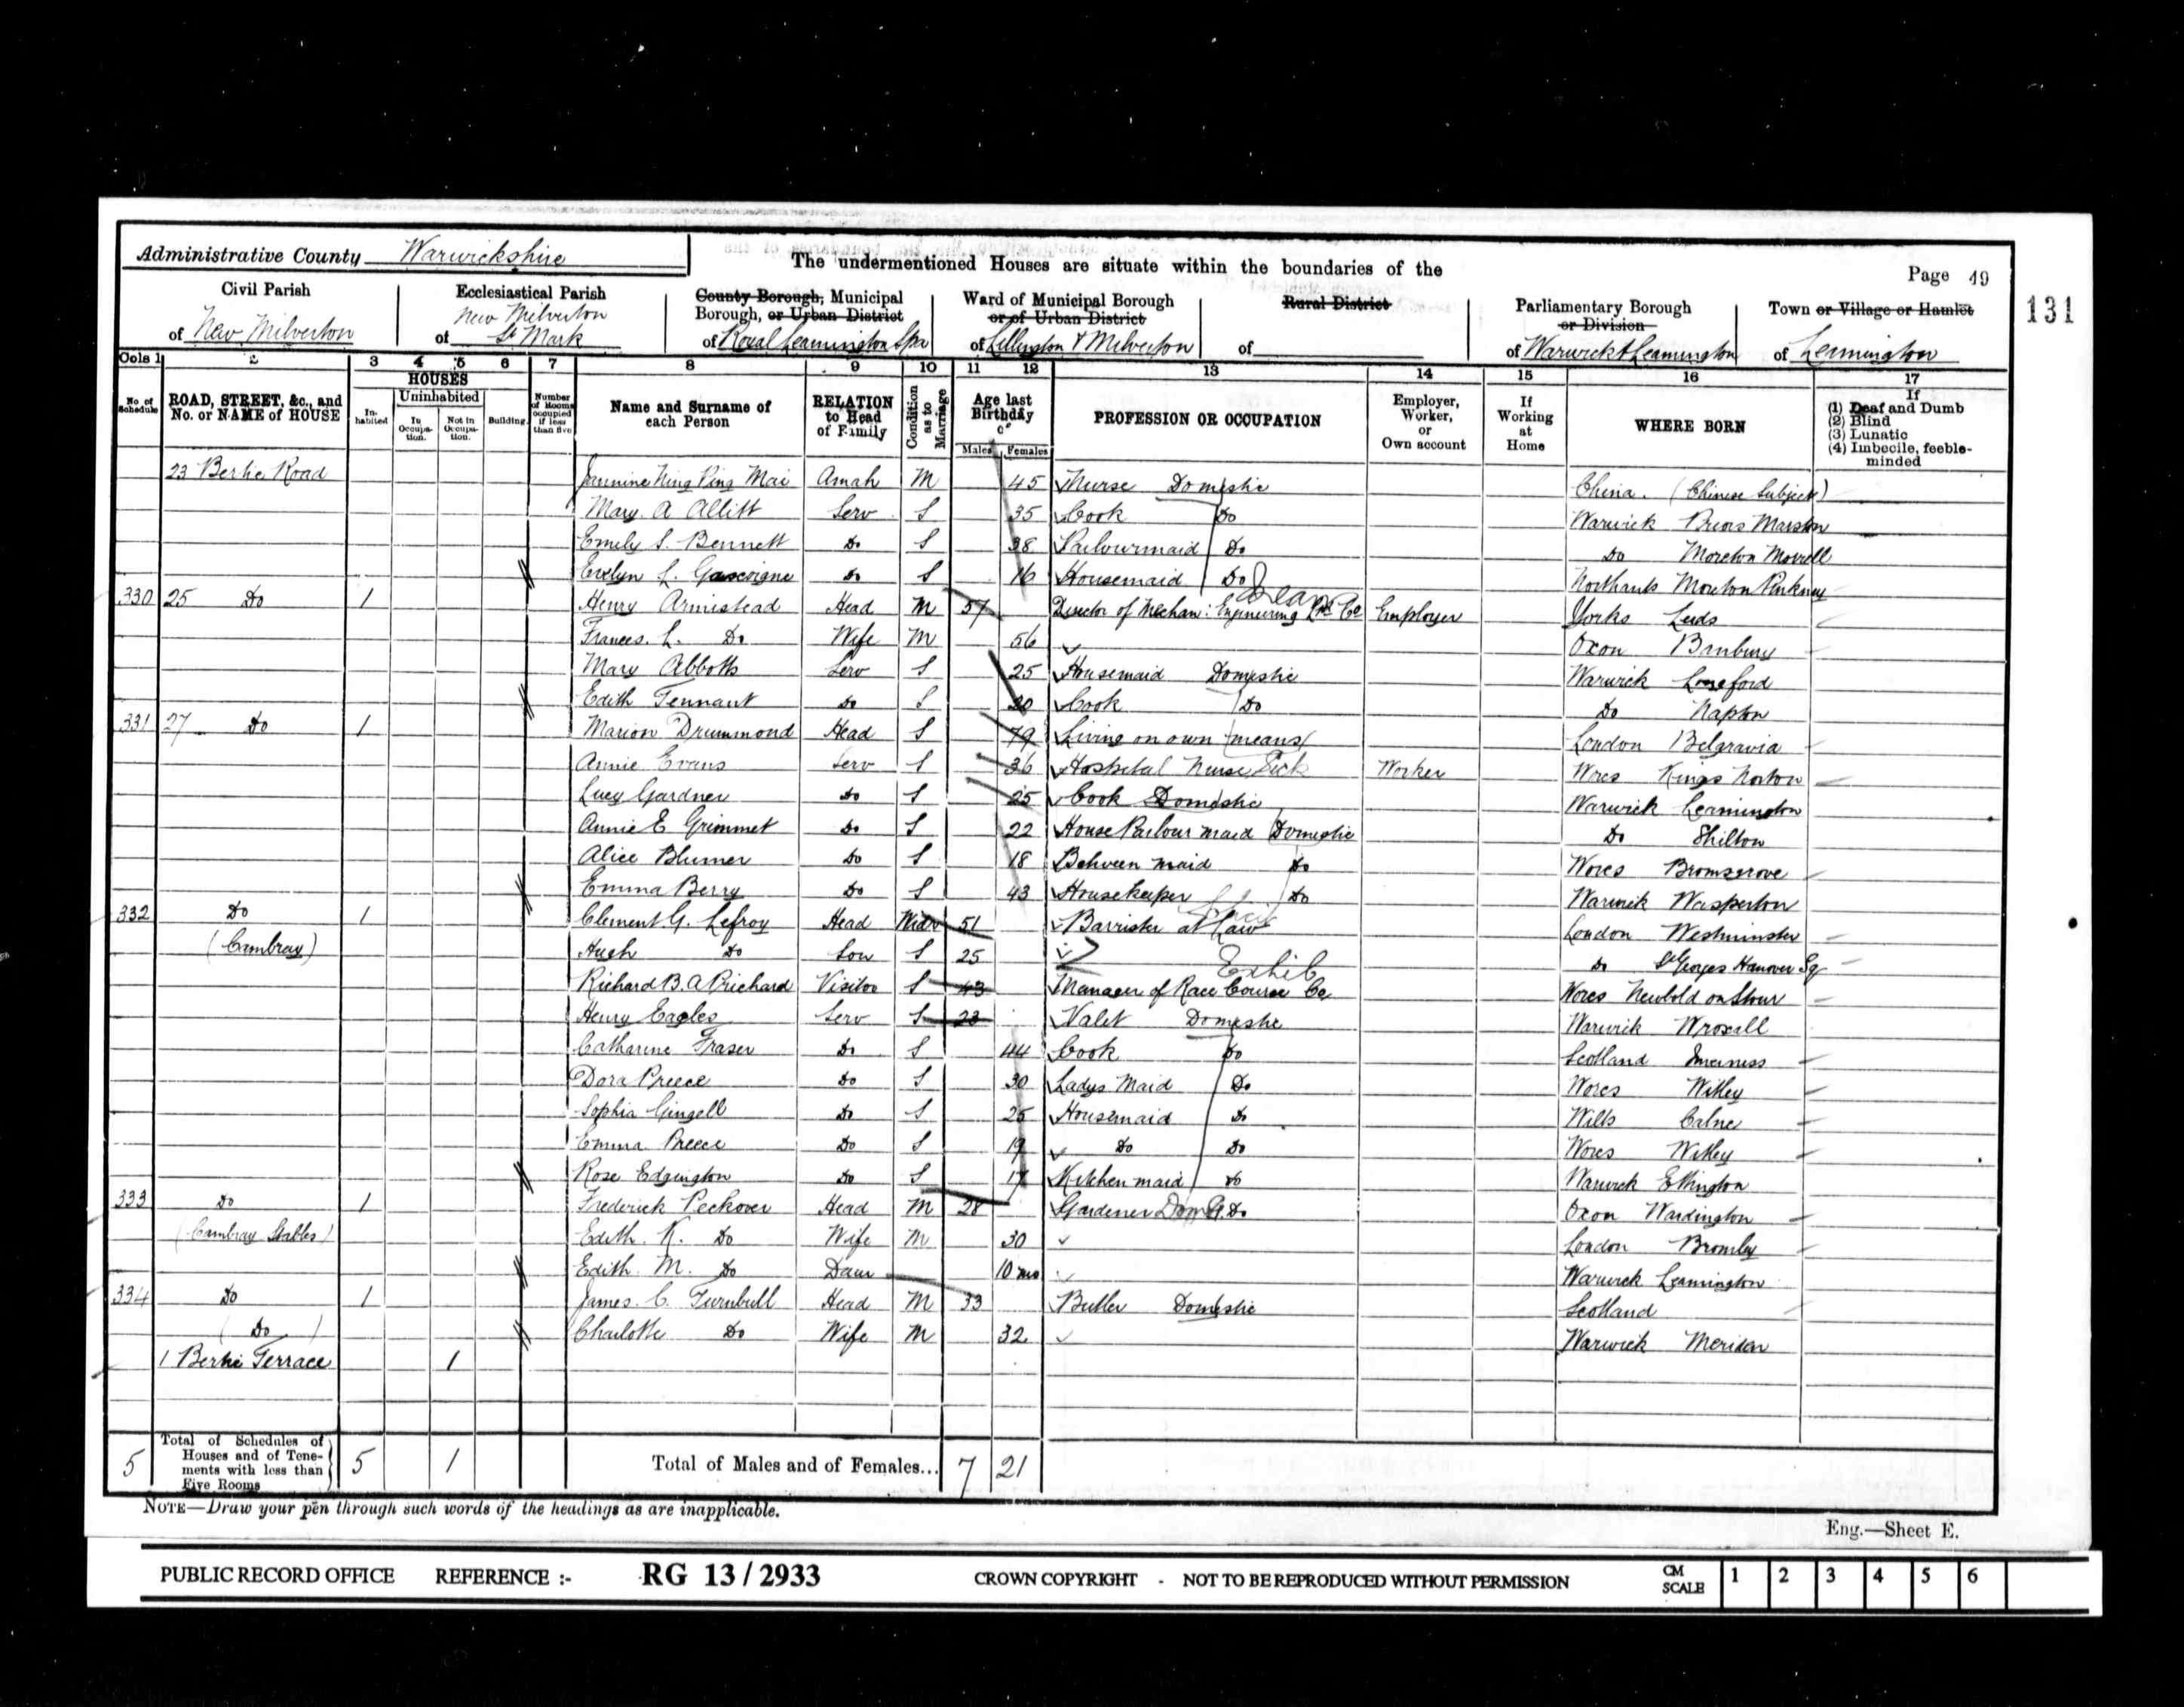 Administrative County Warwickshire
The undermentioned Houses are situate within the boundaries of the
Page 49
131
Civil Parish of New Milverton
Ecclesiastical Parish of New Milverton St Mark
County Borough, Municipal Borough, or Urban District of Royal Leamington Spa
Ward of Municipal Borough or of Urban District of Lillington & Milverton
Rural District of
Parliamentary Borough or Division of Warwick & Leamington
Town or Village or Hamlet of Leamington
Cols 1 2 3 4 5 6 7 8 9 10 11 12 13 14 15 16 17
No. of Schedule
ROAD, STREET, &c., and No. or NAME of HOUSE
HOUSES
Inhabited
Uninhabited
In Occupation.
Not in Occupation.
Building.
Number of Rooms occupied if less than five
Name and Surname of each Person
RELATION to Head of Family
Condition as to Marriage
Age last Birthday of
Males Females
PROFESSION OR OCCUPATION
Employer, Worker, or Own account
If Working at Home
WHERE BORN
If
(1) Deaf and Dumb
(2) Blind
(3) Lunatic
(4) Imbecile, feeble-minded
23 Bertie Road Ning Ping Mai Amah M 45 Nurse Domestic China. (Chinese Subject)
Mary A Allitt Serv S 35 Cook Do Warwick Priors Marston
Emily S. Bennett Do S 38 Parlourmaid Do Do Moreton Morrell
Evelyn L. Gascoigne Do S 16 Housemaid Do Northants Moreton Pinkney
330 25 Do 1 Henry Armistead Head M 57 Director of Mechan: Engineering Co Employer Yorks Leeds
Frances. L. Do Wife M 56 Oxon Banbury
Mary Abbotts Serv S 25 Housemaid Domestic Warwick
Edith Tennant Do S 20 Cook Do Do Napton
331 27 Do 1 Marion Drummond Head S 79 Living on own means London Belgravia
Annie Evans Serv S 36 Hospital Nurse Sick Worker Worcs Kings Norton
Lucy Gardner Do S 25 Cook Domestic Warwick Leamington
Annie E Grimmet Do S 22 House Parlour maid Domestic Do Shilton
Alice Blumer Do S 18 Between maid Do Worcs Bromsgrove
Emma Berry Do S 43 Housekeeper Do Warwick Wasperton
332 Do 1 Clement G. Lefroy Head Widr 51 Barrister at Law London Westminster
(Cambray) Hugh Do Son S 25 Do St Georges Hanover Sq
Exhib
Richard B. A Prichard Visitor S 43 Manager of Race Course Co Worcs Newbold on Stour
Henry Eagles Serv S 23 Valet Domestic Warwick Wroxall
Catharine Fraser Do S 44 Cook Do Scotland Inverness
Dora Preece Do S 30 Ladys Maid Do Worcs Witley
Sophia Gingell Do S 25 Housemaid Do Wilts Calne
Emma Preece Do S 19 Do Do Worcs Witley
Rose Edgington Do S 17 Kitchen maid Do Warwick Ettington
333 Do 1 Frederick Peckover Head M 28 Gardener Dom G. Do Oxon Wardington
(Cambray Stables) Edith. K. Do Wife M 30 London Bromley
Edith. M. Do Daur 10 mo Warwick Leamington
334 Do 1 James. C. Turnbull Head M 33 Butler Domestic Scotland
(Do) Charlotte Do Wife M 32 Warwick Meriden
1 Bertie Terrace 1
5 Total of Schedules of Houses and of Tenements with less than Five Rooms 5 1 Total of Males and of Females... 7 21
NOTE—Draw your pen through such words of the headings as are inapplicable.
Eng.—Sheet E.
PUBLIC RECORD OFFICE REFERENCE :- RG 13 / 2933 CROWN COPYRIGHT - NOT TO BE REPRODUCED WITHOUT PERMISSION CM SCALE 1 2 3 4 5 6